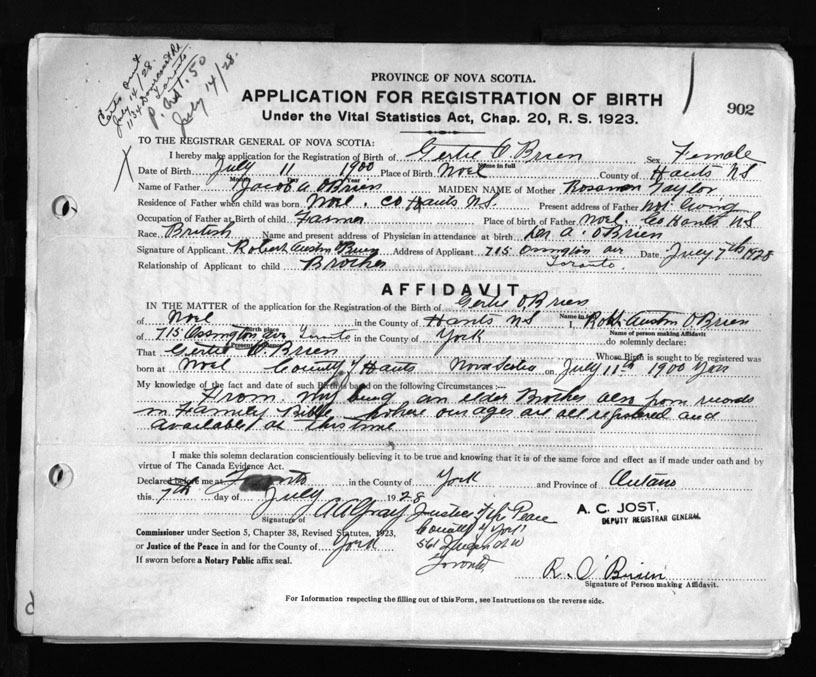 Certs sent
July 14/28.
Toronto
P. Act. 50
July 14/28.
PROVINCE OF NOVA SCOTIA.
APPLICATION FOR REGISTRATION OF BIRTH
902
Under the Vital Statistics Act, Chap. 20, R. S. 1923.
TO THE REGISTRAR GENERAL OF NOVA SCOTIA:
I hereby make application for the Registration of Birth of Gertie O'Brien Sex Female
Name in full
Date of Birth July 11 1900 Place of Birth Noel County of Hants NS
Month Day Year
Name of Father Jacob A. OBrien MAIDEN NAME of Mother Rosamon Taylor
Residence of Father when child was born Noel. Co Hants NS. Present address of Father
Occupation of Father at Birth of child Farmer Place of birth of Father Noel, Co Hants NS
Race British Name and present address of Physician in attendance at birth Dr A. OBrien
Signature of Applicant Robert Austin OBrien Address of Applicant 715 Ossington ave Date July 7th 1928
Toronto.
Relationship of Applicant to child Brother
AFFIDAVIT
IN THE MATTER of the application for the Registration of the Birth of Gertie O'Brien
Name in full
of Noel in the County of Hants NS I, Robt. Austin OBrien
Birth place Name of person making affidavit
of 715 Ossington ave Toronto in the County of York do solemnly declare:
Present residence
That Gertie O'Brien Whose Birth is sought to be registered was
born at Noel County of Hants Nova Scotia on July 11th 1900
My knowledge of the fact and date of such Birth is based on the following Circumstances :—
From my being an elder Brother also from records
in Family Bible where our ages are all registered and
available at this time
I make this solemn declaration conscientiously believing it to be true and knowing that it is of the same force and effect as if made under oath and by
virtue of The Canada Evidence Act.
Declared before me at Toronto in the County of York and Province of Ontario
this 7th day of July 1928
A. C. JOST,
DEPUTY REGISTRAR GENERAL
Signature of AA Gray Justice of the Peace
Commissioner under Section 5, Chapter 38, Revised Statutes, 1923, County of York
or Justice of the Peace in and for the County of York 561 Queen St W
If sworn before a Notary Public affix seal. Toronto
R. O'Brien
Signature of Person making Affidavit.
For Information respecting the filling out of this Form, see Instructions on the reverse side.